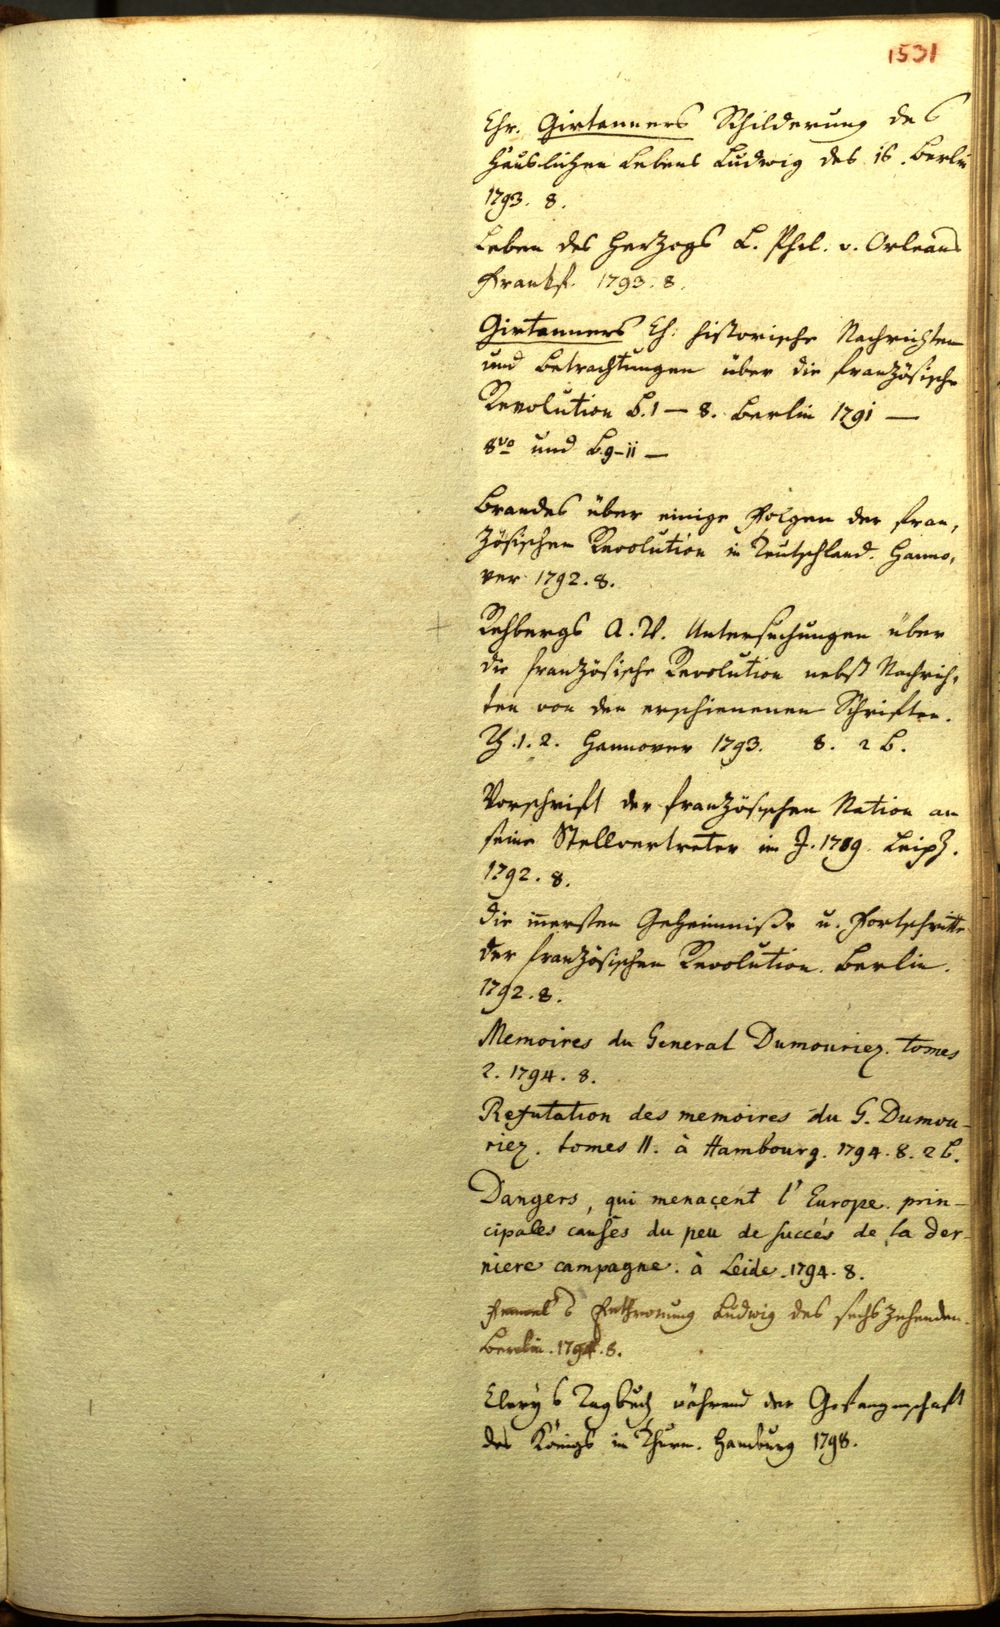 1531
Chr. Girtanners Schilderung des
häuslichen Lebens Ludwig des 16. Berlin
1793. 8.
Leben des Herzogs L. Phil. v. Orleans
Frankf. 1793. 8.
Girtanners Ch. historische Nachrichten
und Betrachtungen über die französische
Revolution B. 1 — 8. Berlin 1791 —
8vo und B. 9–11 —
Brandes über einige Folgen der fran,
zösischen Revolution in Teutschland. Hanno,
ver 1792. 8.
Rehbergs A. W. Untersuchungen über
die französische Revolution nebst Nachrich,
ten von den erschienenen Schriften.
Th. 1. 2. Hannover 1793. 8. 2 B.
Vorschrift der französischen Nation an
seine Stellvertreter im J. 1789. Leipz.
1792. 8.
Die innersten Geheimniße u. Fortschritte
der französischen Revolution. Berlin.
1792. 8.
Memoires du General Dumouriez. tomes
2. 1794. 8.
Refutation des memoires du G. Dumou-
riez. tomes II. à Hambourg. 1794. 8. 2 B.
Dangers, qui menaçent l'Europe. prin-
cipales causes du peu de succés de la der-
niere campagne. à Leide. 1794. 8.
Entthronung Ludwig des sechszehenden.
Berlin. 8.
Clery's Tagbuch während der Gefangenschaft
des Königs im Thurm. Hamburg 1798.